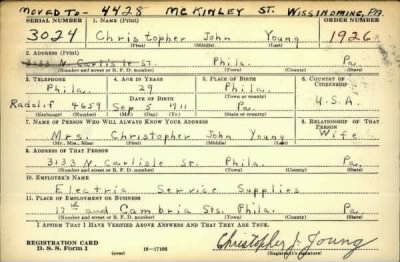 MOVED TO - 4428 MCKINLEY ST. WISSINOMING, PA.
SERIAL NUMBER 1. NAME (Print) ORDER NUMBER
3024 Christopher John Young 1926
(First) (Middle) (Last)
2. ADDRESS (Print)
3133 N. Carlisle St. Phila. Pa.
(Number and street or R. F. D. number) (Town) (County) (State)
3. TELEPHONE 4. AGE IN YEARS 5. PLACE OF BIRTH 6. COUNTRY OF CITIZENSHIP
Phila. 29 Phila.
(Exchange) DATE OF BIRTH (Town or county)
Radclif 4659 Sep 5 1911 Pa. U.S.A.
(Number) (Mo.) (Day) (Yr.) (State or country)
7. NAME OF PERSON WHO WILL ALWAYS KNOW YOUR ADDRESS 8. RELATIONSHIP OF THAT PERSON
Mrs. Christopher John Young Wife
(Mr., Mrs., Miss) (First) (Middle) (Last)
9. ADDRESS OF THAT PERSON
3133 N. Carlisle St. Phila. Pa.
(Number and street or R. F. D. number) (Town) (County) (State)
10. EMPLOYER'S NAME
Electric Service Supplies
11. PLACE OF EMPLOYMENT OR BUSINESS
17th and Cambria Sts. Phila. Pa.
(Number and street or R. F. D. number) (Town) (County) (State)
I AFFIRM THAT I HAVE VERIFIED ABOVE ANSWERS AND THAT THEY ARE TRUE.
REGISTRATION CARD
D. S. S. Form 1 (over) 16-17105 Christopher J. Young
(Registrant's signature)